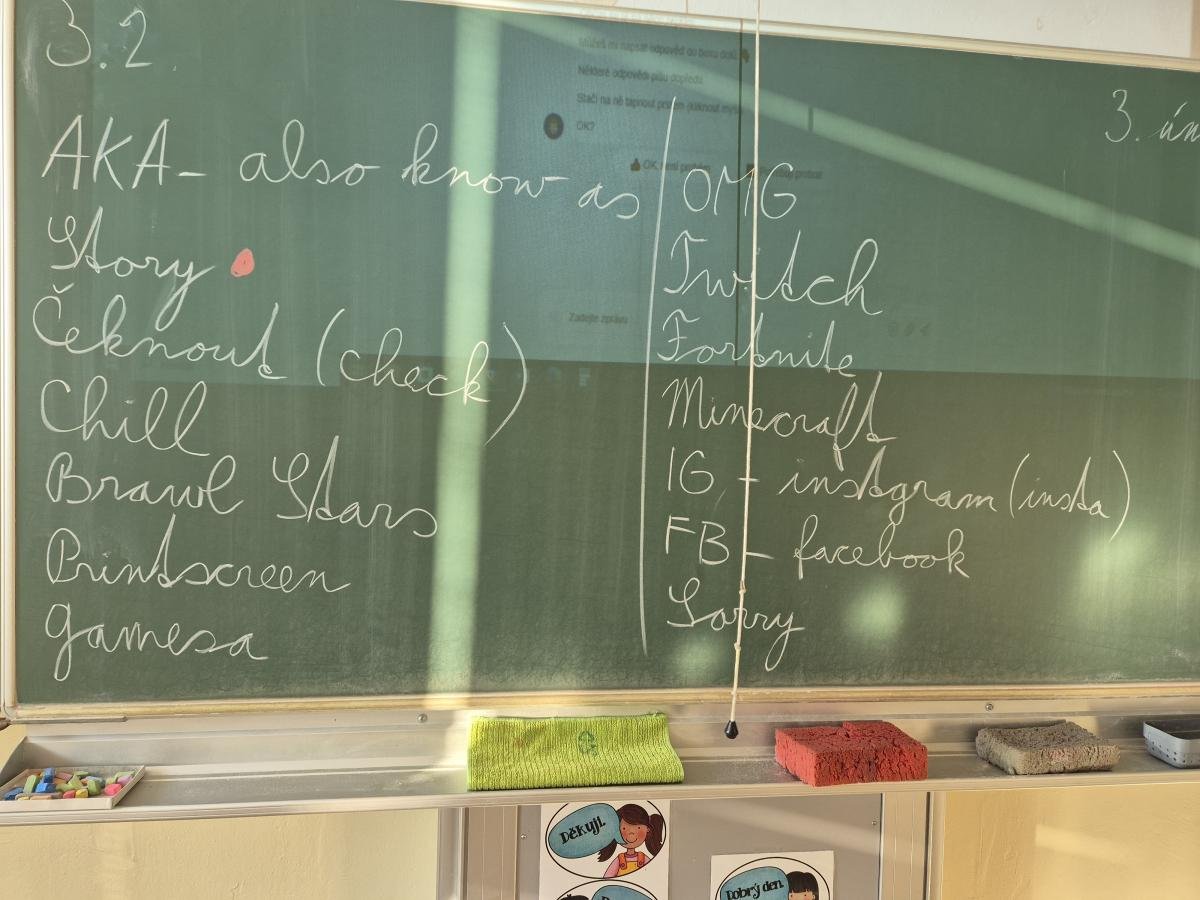 3.2.
3. ún
AKA - also know as
Story
Čeknout (check)
Chill
Brawl Stars
Printscreen
gamesa
OMG
Twitch
Fortnite
Minecraft
IG - instgram (insta)
FB - facebook
Sorry
Můžeš mi napsat odpověď do boxu dolů
Některé odpovědi píšu dopředu
Stačí na ně tapnout prstem
OK?
OK, není problém
Zadejte zprávu
Děkuji.
Dobrý den